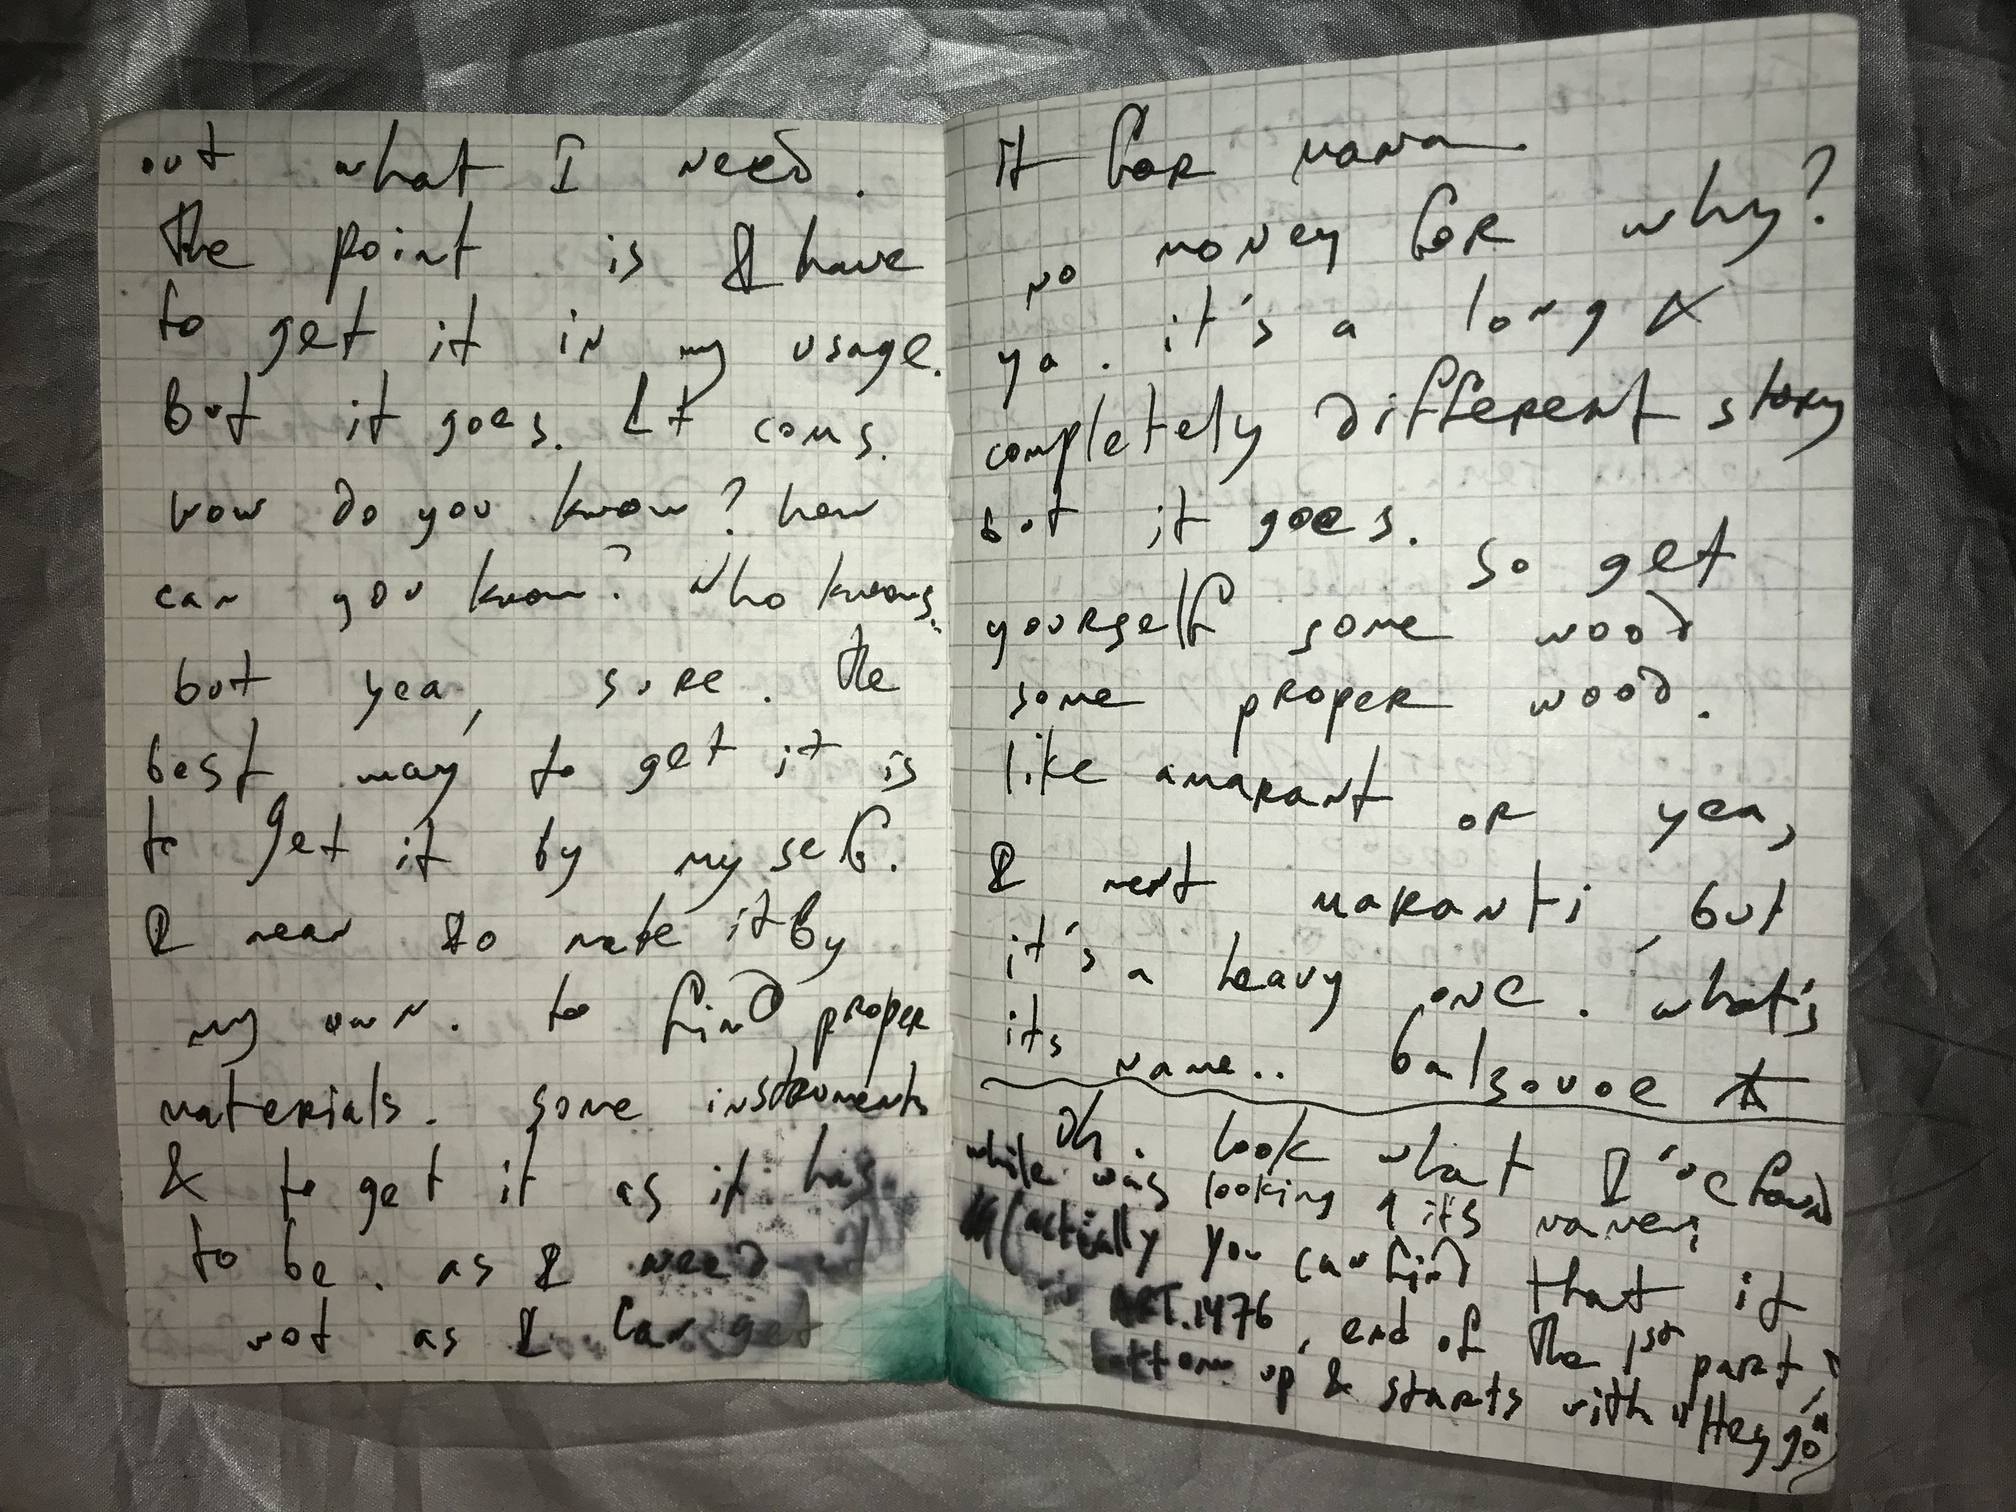 out what I need.
The point is I have
to get it in my usage.
But it goes. It coms.
how do you know? how
can you know? Who knows.
but yea, sure. The
best way to get it is
to get it by my self.
I mean to make it by
my own. to find proper
materials. some instruments
& to get it as it has
to be. as I need
not as I can get
it for mana.
no money for why?
ya. it's a long &
completely different story
but it goes. so get
yourself some wood
some proper wood.
like amarant or yea,
I ment maranti, but
it's a heavy one. what's
its name..
oh. look what I've found
while was looking 4 its name;
(actually you can find that it
ART.1476, end of the 1st part,
bottom up & starts with "Hey go")